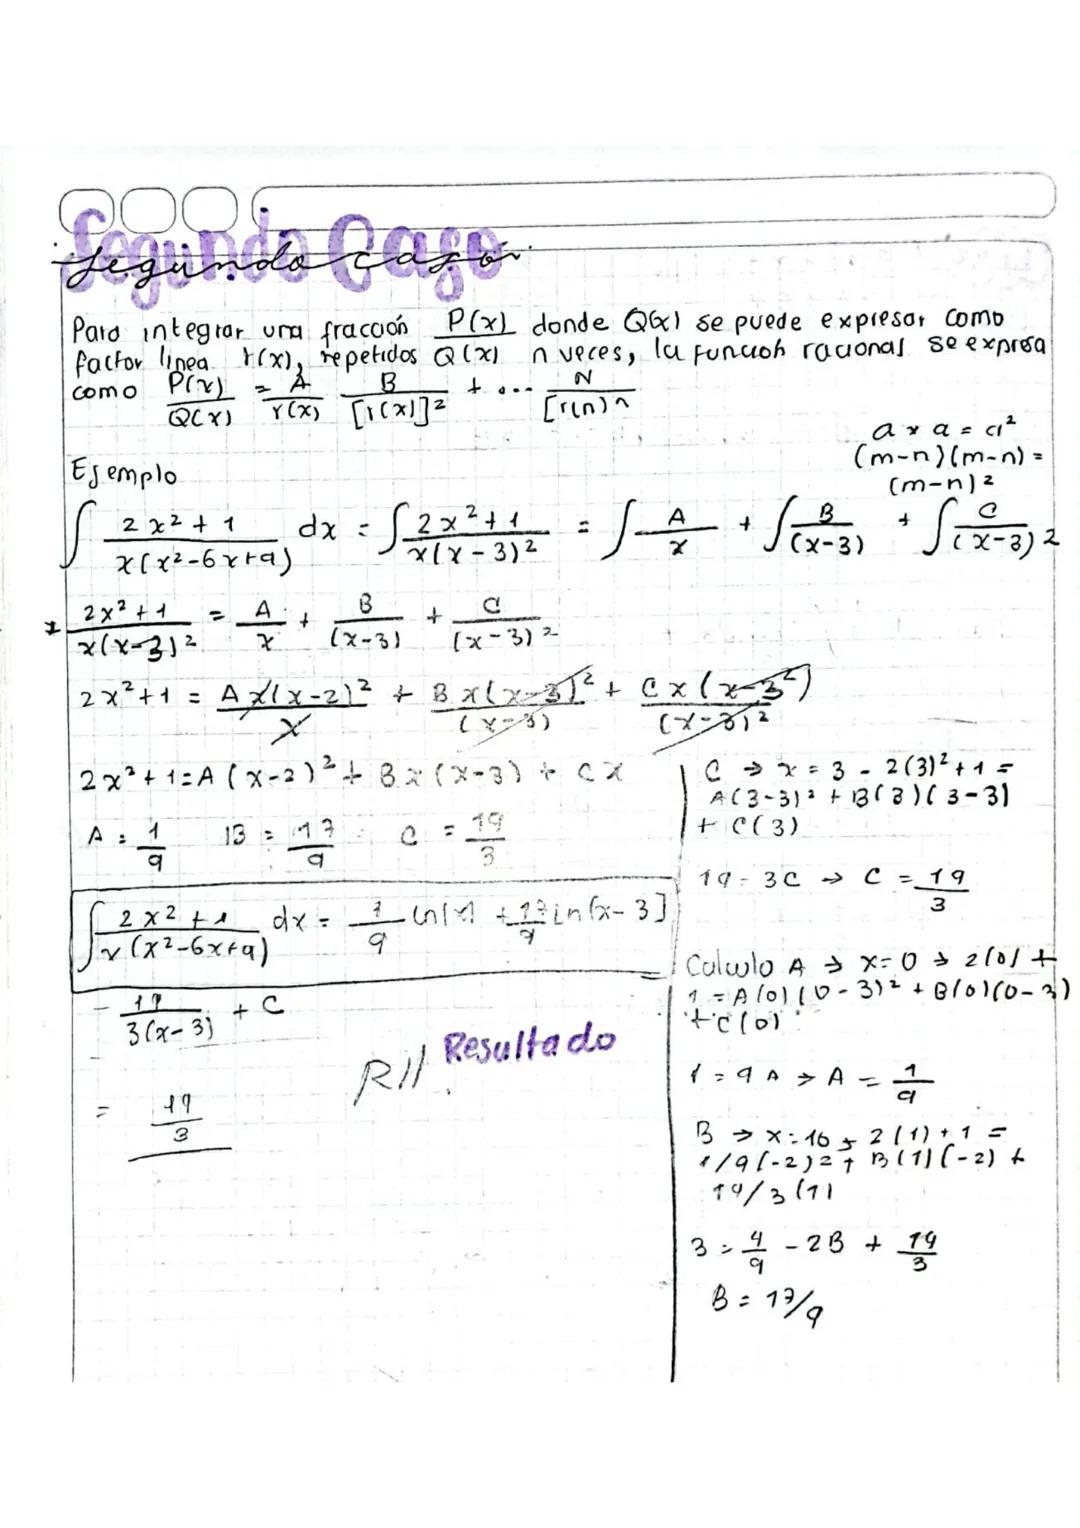 Segundo Caso
Segundo caso
Para integrar una fracción P(x) donde Q(x) se puede expresar como
factor linea r(x), repetidos Q(x) n veces, la función racional se expresa
como P(x)/Q(x) = A/r(x) B/[r(x)]² + ... N/[r(n)ⁿ
a x a = a²
(m-n)(m-n) =
(m-n)²
Ejemplo
∫ 2x²+1/x(x²-6x+9) dx = ∫ 2x²+1/x(x-3)² = ∫ A/x + ∫ B/(x-3) + ∫ C/(x-3)2
* 2x²+1/x(x-3)² = A/x + B/(x-3) + C/(x-3)²
2x²+1 = Ax(x-2)²/x + Bx(x-3)²/(x-3) + Cx(x-3²)/(x-3)²
2x²+1=A(x-2)²+Bx(x-3)+Cx
A = 1/9 B = 17/9 C = 19/3
∫ 2x²+1/x(x²-6x+9) dx = 1/9 ln|x| + 17/9 ln(x-3]
- 19/3(x-3) + C
R// Resultado
= 19/3
C → x = 3 - 2(3)²+1 =
A(3-3)² + B(3)(3-3)
+ C(3)
19 = 3C → C = 19/3
Calculo A → x=0 → 2(0) +
1 = A(0)(0-3)² + B(0)(0-3)
+ C(0)
1 = 9A → A = 1/9
B → x=16 → 2(1)+1 =
1/9(-2)2 + B(1)(-2) +
19/3(1)
3 = 4/9 - 2B + 19/3
B = 17/9